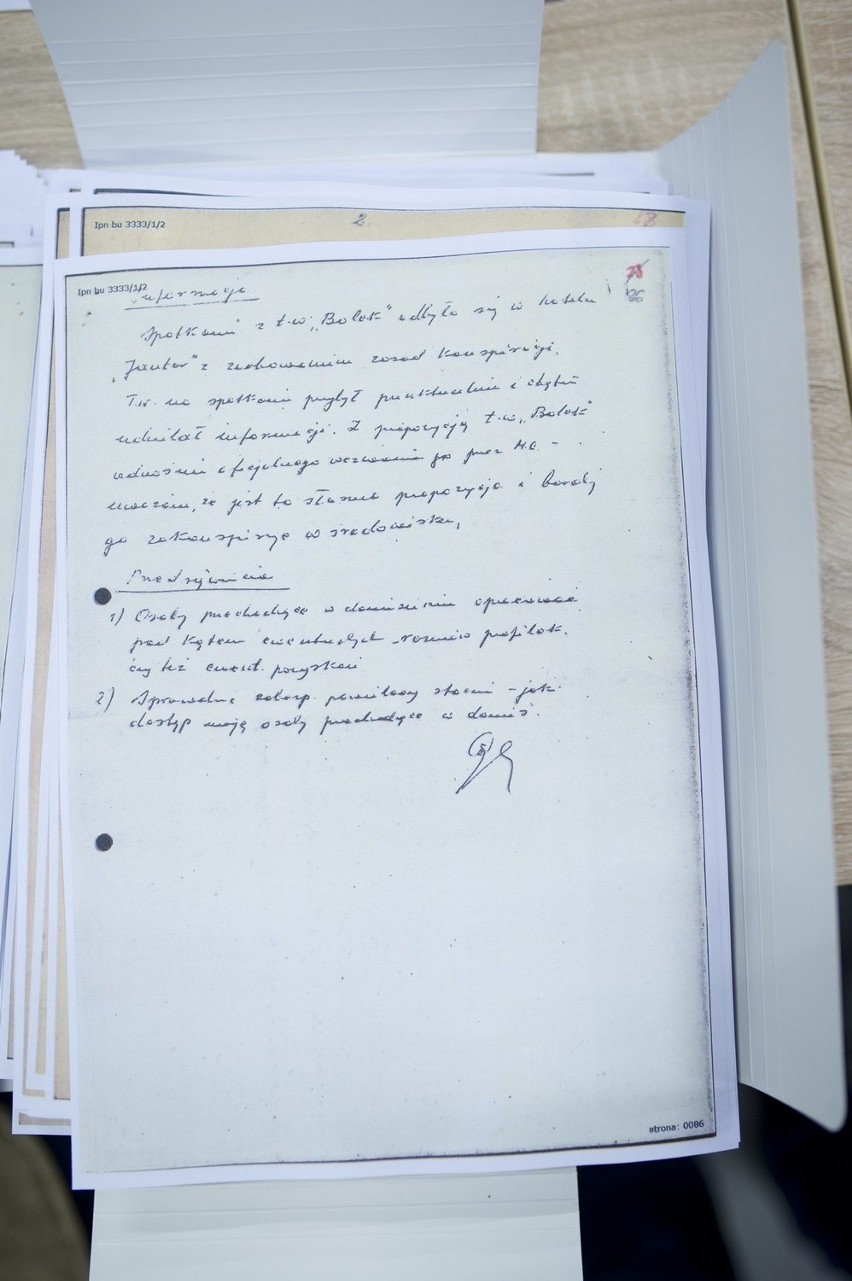 Ipn bu 3333/1/2
2
Ipn bu 3333/1/2
Informacje
Spotkanie z t.w. „Bolek” odbyło się w hotelu
„Jantar” z zachowaniem zasad konspiracji.
T.w. na spotkanie przybył punktualnie i chętnie
udzielał informacji. Z propozycją t.w. „Bolek”
odnośnie oficjalnego wezwania go przez
uważam, że jest to słuszna propozycja i bardziej
go zakonspiruje w środowisku.
Przedsięwzięcia
1) Osoby przechodzące w doniesieniu opracować
pod kątem ewentualnych rozmów profilak.
czy też ewent. pozyskań
2) Sprawdzić stoczni - jaki
dostęp mają osoby przechodzące w donies.
strona: 0086